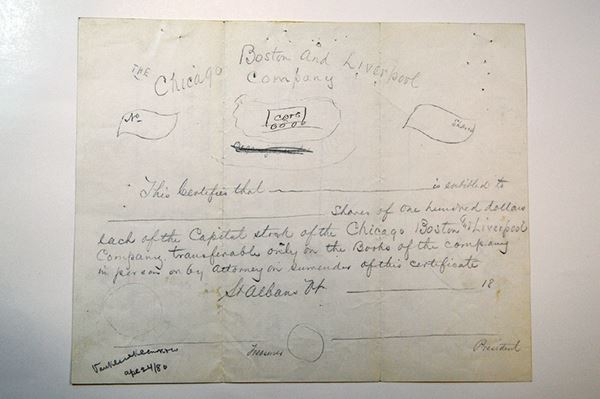 THE Chicago Boston and Liverpool
Company
No
Cars
Shares
This Certifies that is entitled to
Shares of one hundred dollars
each of the Capital stock of the Chicago Boston & Liverpool
Company, transferable only on the Books of the company
in person or by Attorney on surrender of this certificate
St Albans Vt 18
Treasurer President
apl 24/80